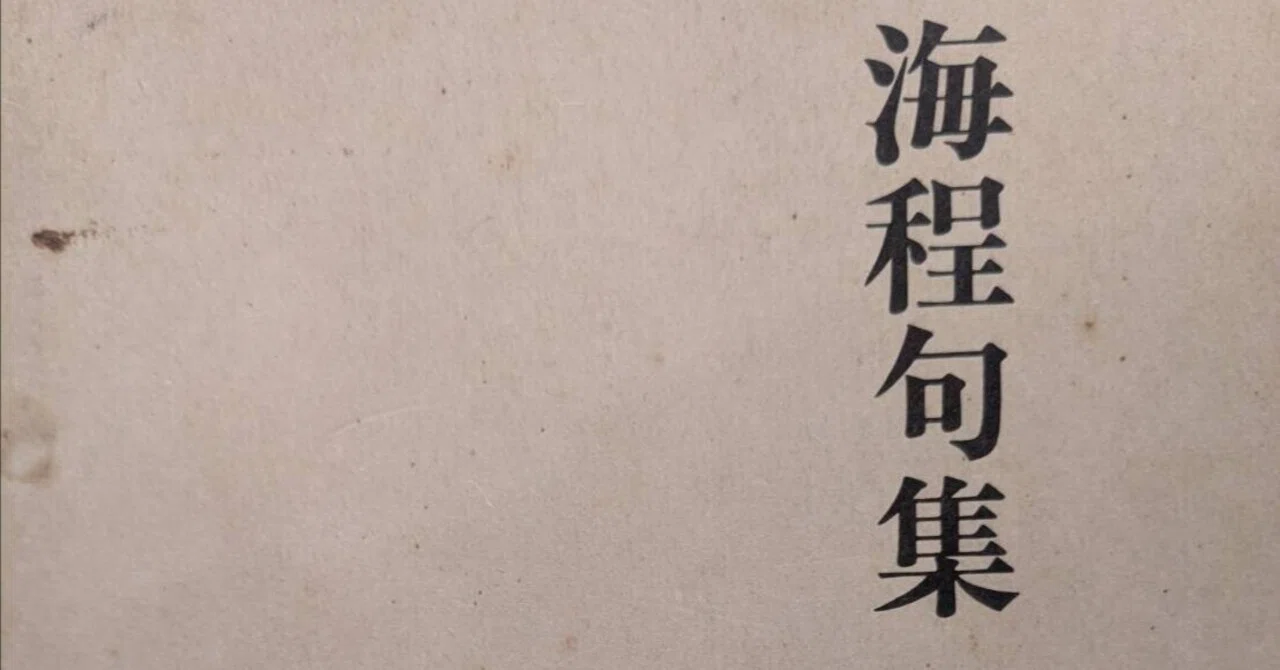 海程句集